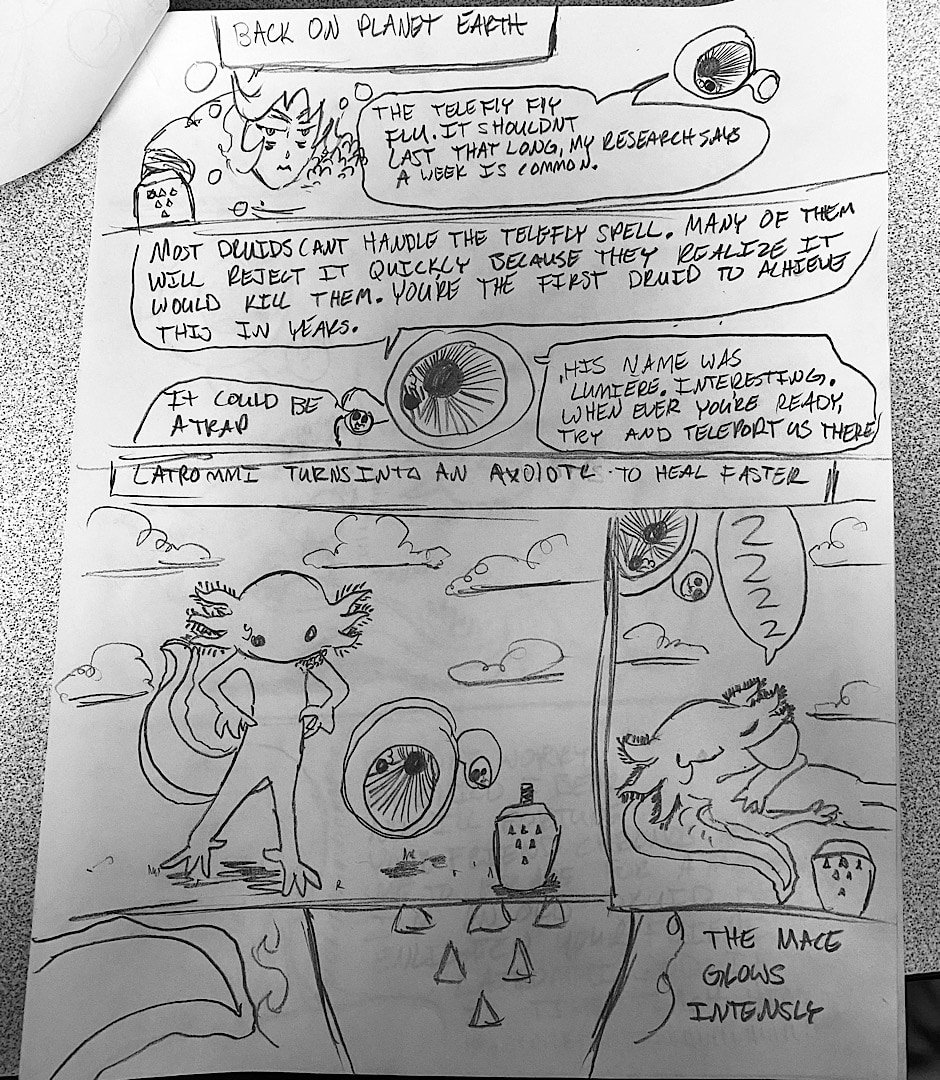 BACK ON PLANET EARTH
THE TELEFLY FLY
FLU. IT SHOULDNT
LAST THAT LONG, MY RESEARCH SAYS
A WEEK IS COMMON.
MOST DRUIDS CANT HANDLE THE TELEFLY SPELL. MANY OF THEM
WILL REJECT IT QUICKLY BECAUSE THEY REALIZE IT
WOULD KILL THEM. YOU'RE THE FIRST DRUID TO ACHIEVE
THIS IN YEARS.
IT COULD BE
A TRAP
HIS NAME WAS
LUMIERE. INTERESTING.
WHEN EVER YOU'RE READY,
TRY AND TELEPORT US THERE
LATROMMI TURNS INTO AN AXOLOTL TO HEAL FASTER
Z
Z
Z
Z
THE MACE
GLOWS
INTENSLY